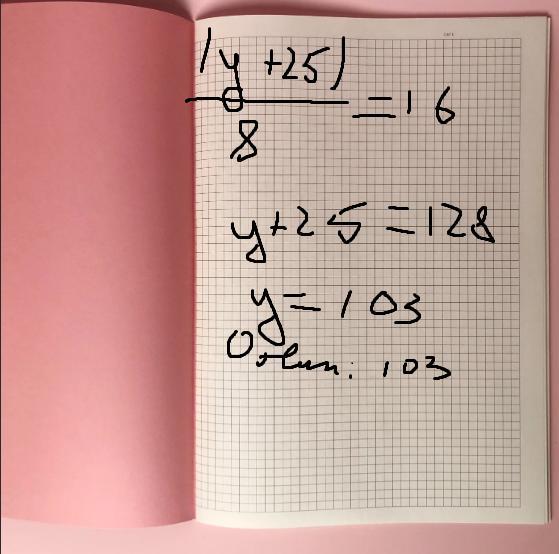 (y+25)
8
=16
y+25=128
y=103
Ответ: 103